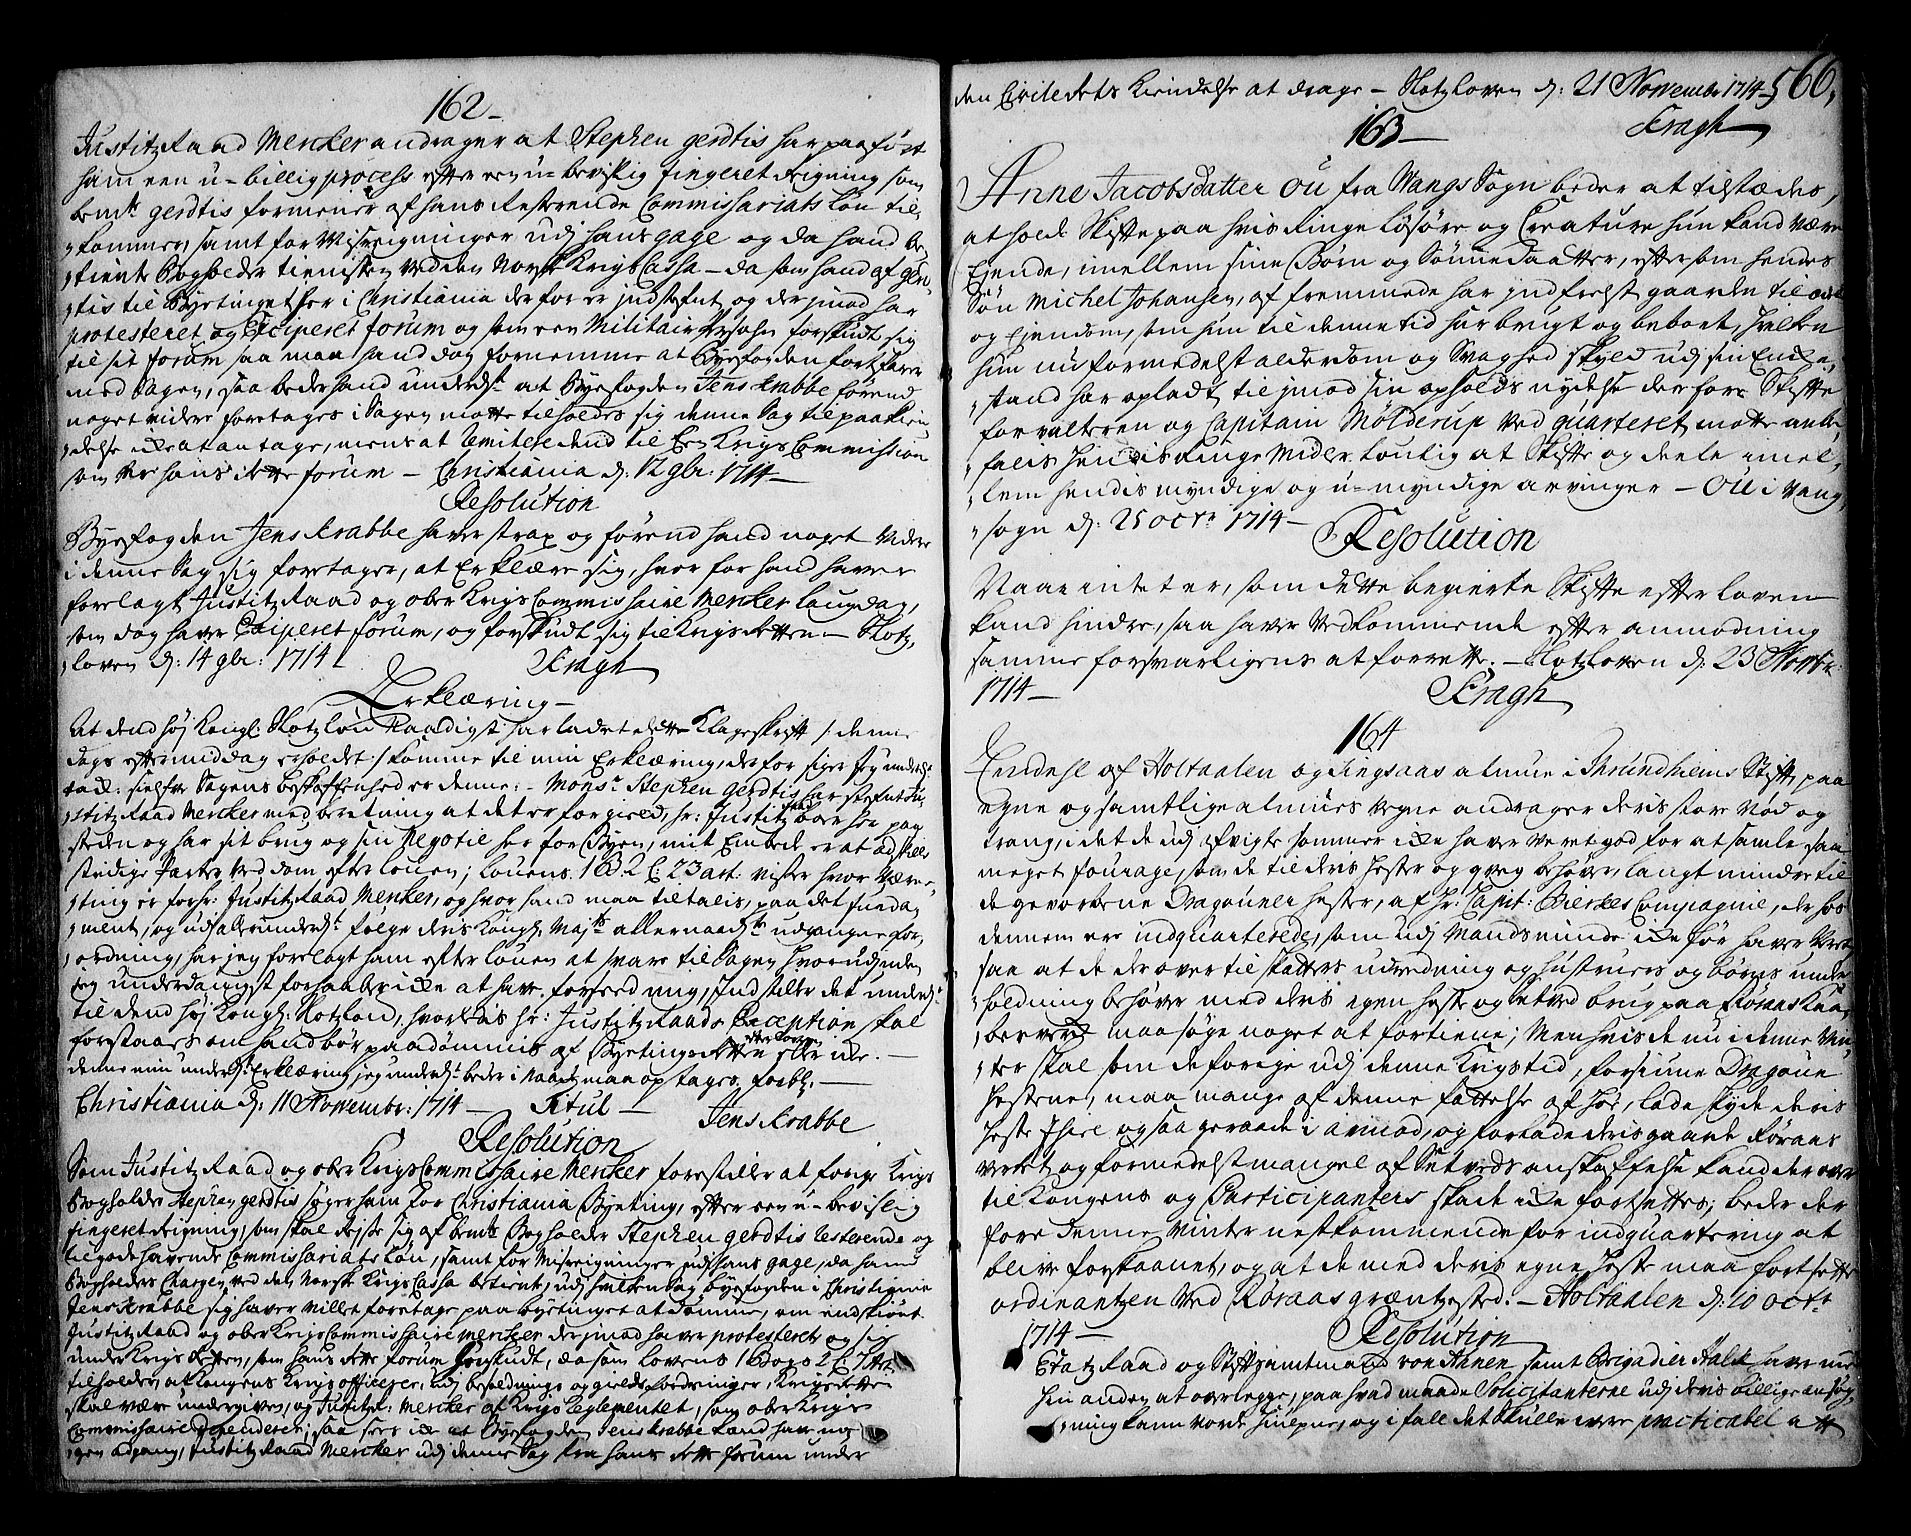 162 –
Justitz Raad Mercker andrager at Stephen gerdtis har paaført
ham een u-billig process efter een u-bevislig fingeret Reigning som
bemte gerdtis formener af hans Resterende Commissariats Løn til-
kommer, samt for Misreigninger udj hans gage og da hand be-
tiente Bogholder tienisten ved den Norske Krigs Cassa – da som hand af ger-
tis til Byetinget her i Christiania derfor er indstefnt og derjmod har
protesteret og Exciperet forum og som een Militair Persohn forskudt sig
til sit forum saa maa hand dog fornemme at Byefogden fortfarer
med Sagen, saa beder hand underdst at Byefogden Jens Krabbe førend
noget videre foretages i Sagen motte tilholdes sig denne Sag til paakien-
delse icke at antage, mens at Remitere dend til Een Krigs Commission
som er hans rette forum – Christiania d: 12 9br: 1714 –
Resolution
Byefogden Jens Krabbe haver strax og førend hand noget videre
i denne Sag sig foretager, at Erklære sig, hvorfor hand haver
forelagt Justitz Raad og ober Krigs Commissaire Mercker laugdag,
som dog haver Exciperet forum, og forskudt sig til Krigs Retten – Slotz-
loven d: 14 9br: 1714
Kragh
Erklæring –
At dend høj Kongl: Slotzlov Naadigst har ladet dette Klageskrift /: denne
dags eftermiddag erholdet :/ komme til min Erklæring, derfor siger jeg underdst
tack: sielfve Sagens beskaffenhed er denne: – Monsr Stephen gerdtis har stefnt Ju-
stitz Raad Mercker med beretning at det er for gield, hr: Justitz Raad boer her paa
steden og har sit brug og sin Negotie her for Byen, mit Embede er at adskille
stridige Parter ved dom efter louen; Louens 1 B. 2 C: 23 art: viser hvor Værne-
ting er for hr: Justitz Raad Mercker, og hvor hand maa tiltalis, paa det funda-
ment, og udj allerunderdst følge deris Kongl: Majts allernaadste udgangne for-
ordning, har jeg forelagt ham efter louen at svare til Sagen hvorudinden
jeg underdanigst forhaaber icke at have forseed mig, Indstiller det underdst
til dend høj Kongl: Slotzlov, hvorledis hr: Justitz Raads Exception skal
forstaaes om hand bør paadømmis af Byetings Retten efter loven eller icke. –
denne min underdst Erklæring jeg underdst beder i Naade maa optages. forbl: –
Christiania d: 11 Novembr: 1714 – Titul – Jens Krabbe
Resolution
Som Justitz Raad og ober Krigs Commissaire Mercker forestiller at forige Krigs
Bogholder Stephen gerdtis søger ham for Christiania Byeting, efter een u-bevislig
fingeret Reigning, som skal Rejse sig af bemte Bogholder Stephen gerdtis Resterende og
tilgodehavende Commissariats Løn, samt for Misreigninger udj hans gage, da hand
Bogholders Chargen ved den Norske Krigs Cassa betiente, udj hvilken Sag byefogden i Christiania
Jens Krabbe sig haver villet foretage paa byetinget at dømme, om endskiønt
Justitz Raad og ober Krigs Commissaire Mercker derjmod haver protesteret og sig
under Krigs Retten, som hans rette forum forskudt, da som Lovens 1 Bogs 2 C: 7 Art:
tilholder at Kongens Krigs officerer, udj besoldnings og gields fordringer, Krigs Retten
skal være undergiven, og Justitz: Mercker af Krigs Reglementet, som ober Krigs
Commissaire dependerer, saa sees icke at Byefogden Jens Krabbe kand have no-
gen adgang, Justitz Raad Mercker udj denne Sag fra hans rette forum under
den Civile Rets kiendelse at drage – Slotzloven d: 21 Novembr 1714 566.
Kragh
163 –
Anne Jacobsdatter Ou fra Wangs Sogn beder at tilstædes,
at holde Skifte paa hvis Ringe løsøre og Creature hun kand være
Ejende, imellem sine Børn og Sønnedaatter, eftersom hendes
Søn Michel Johansen, af fremmede har indfrelst gaarden til
og Ejendom, som hun til denne tid har brugt og beboet, hvilken
hun nu formedelst alderdom og Svaghed skyld udj sin Encke-
stand har opladt, til jmod sin opholds nydelse derfore Skifte
forvalteren og Capitain Molderup ved quarteret motte anbe-
falis hendis Ringe Midler loulig at Skifte og deele imel-
lem hendes myndige og u-myndige arvinger – Ou i Vang
sogn d: 25 octr 1714 –
Resolution
Naar intet er, som dette begierte Skifte efter loven
kand hindre, saa haver vedkommende efter anmodning
samme forsvarligens at forrette. – Slotzloven d: 23 Novbr:
1714 –
Kragh
164
Hendehl af Holtaalen og Singsaas almue i Thrundhiems Stift paa
egne og samtlige almues vegne andrager deris store Nød og
trang, i det de udj afvigte sommer icke haver veret god for at samle saa
meget fourage, som de til deris hester og qveg behøver, langt mindre til
de gevorbene Dragouner hester, af hr: Capit: Bierkes Compagnie, der hos
dennem ere indquarterede, som udj Mands minde icke før haver veret
saa at de derover til skatters udredning og hustruers og børns under-
holdning behøver med deris egen heste og setved brug paa Røraas Kaa-
berverk maa søge noget at fortiene; Men hvis de nu i denne Vin-
ter skal som de forige udj denne Krigstid, forsiune Dragoune
hestene, maa mange af denne fattelse af høe, lade skyde deris
heste ihiel og saa geraade i armod, og forlade deris gaarde Røraas
verk og formedelst mangel af Setveds anskaffelse kand derover
til Kongens og Participanters skade icke fortsettes; beder der
fore denne vinter nestkommende for indquartering at
blive forskaanet, og at de med deris egne heste maa fortsette
ordinantzen ved Røraas græntzested. – Holtaalen d: 10 octr
1714 –
Resolution
Etatz Raad og Stiftsamtmand von Ahnen samt Brigadier Halck have med
hin anden at overlegge, paa hvad maade Solicitanterne udj deris billige ansøg-
ning kann vorde hiulpne, og i fald det skulle være practicabel at